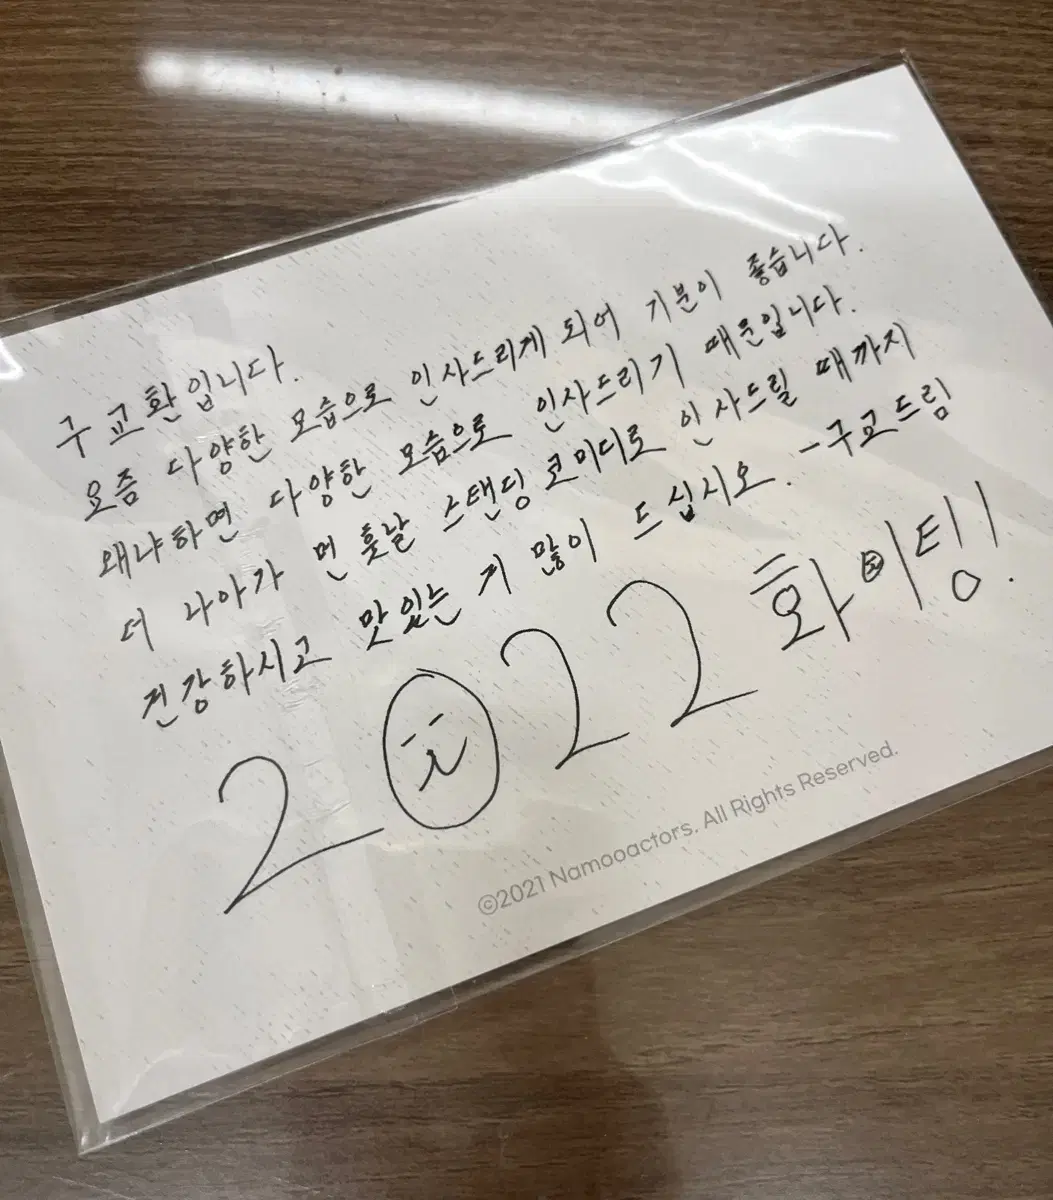 구교환입니다.
요즘 다양한 모습으로 인사드리게 되어 기분이 좋습니다.
왜냐하면 다양한 모습으로 인사드리기 때문입니다.
더 나아가 먼 훗날 스탠딩 코미디로 인사드릴 때까지
건강하시고 맛있는 거 많이 드십시오. -구교드림
2022 화이팅!
©2021 Namooactors. All Rights Reserved.